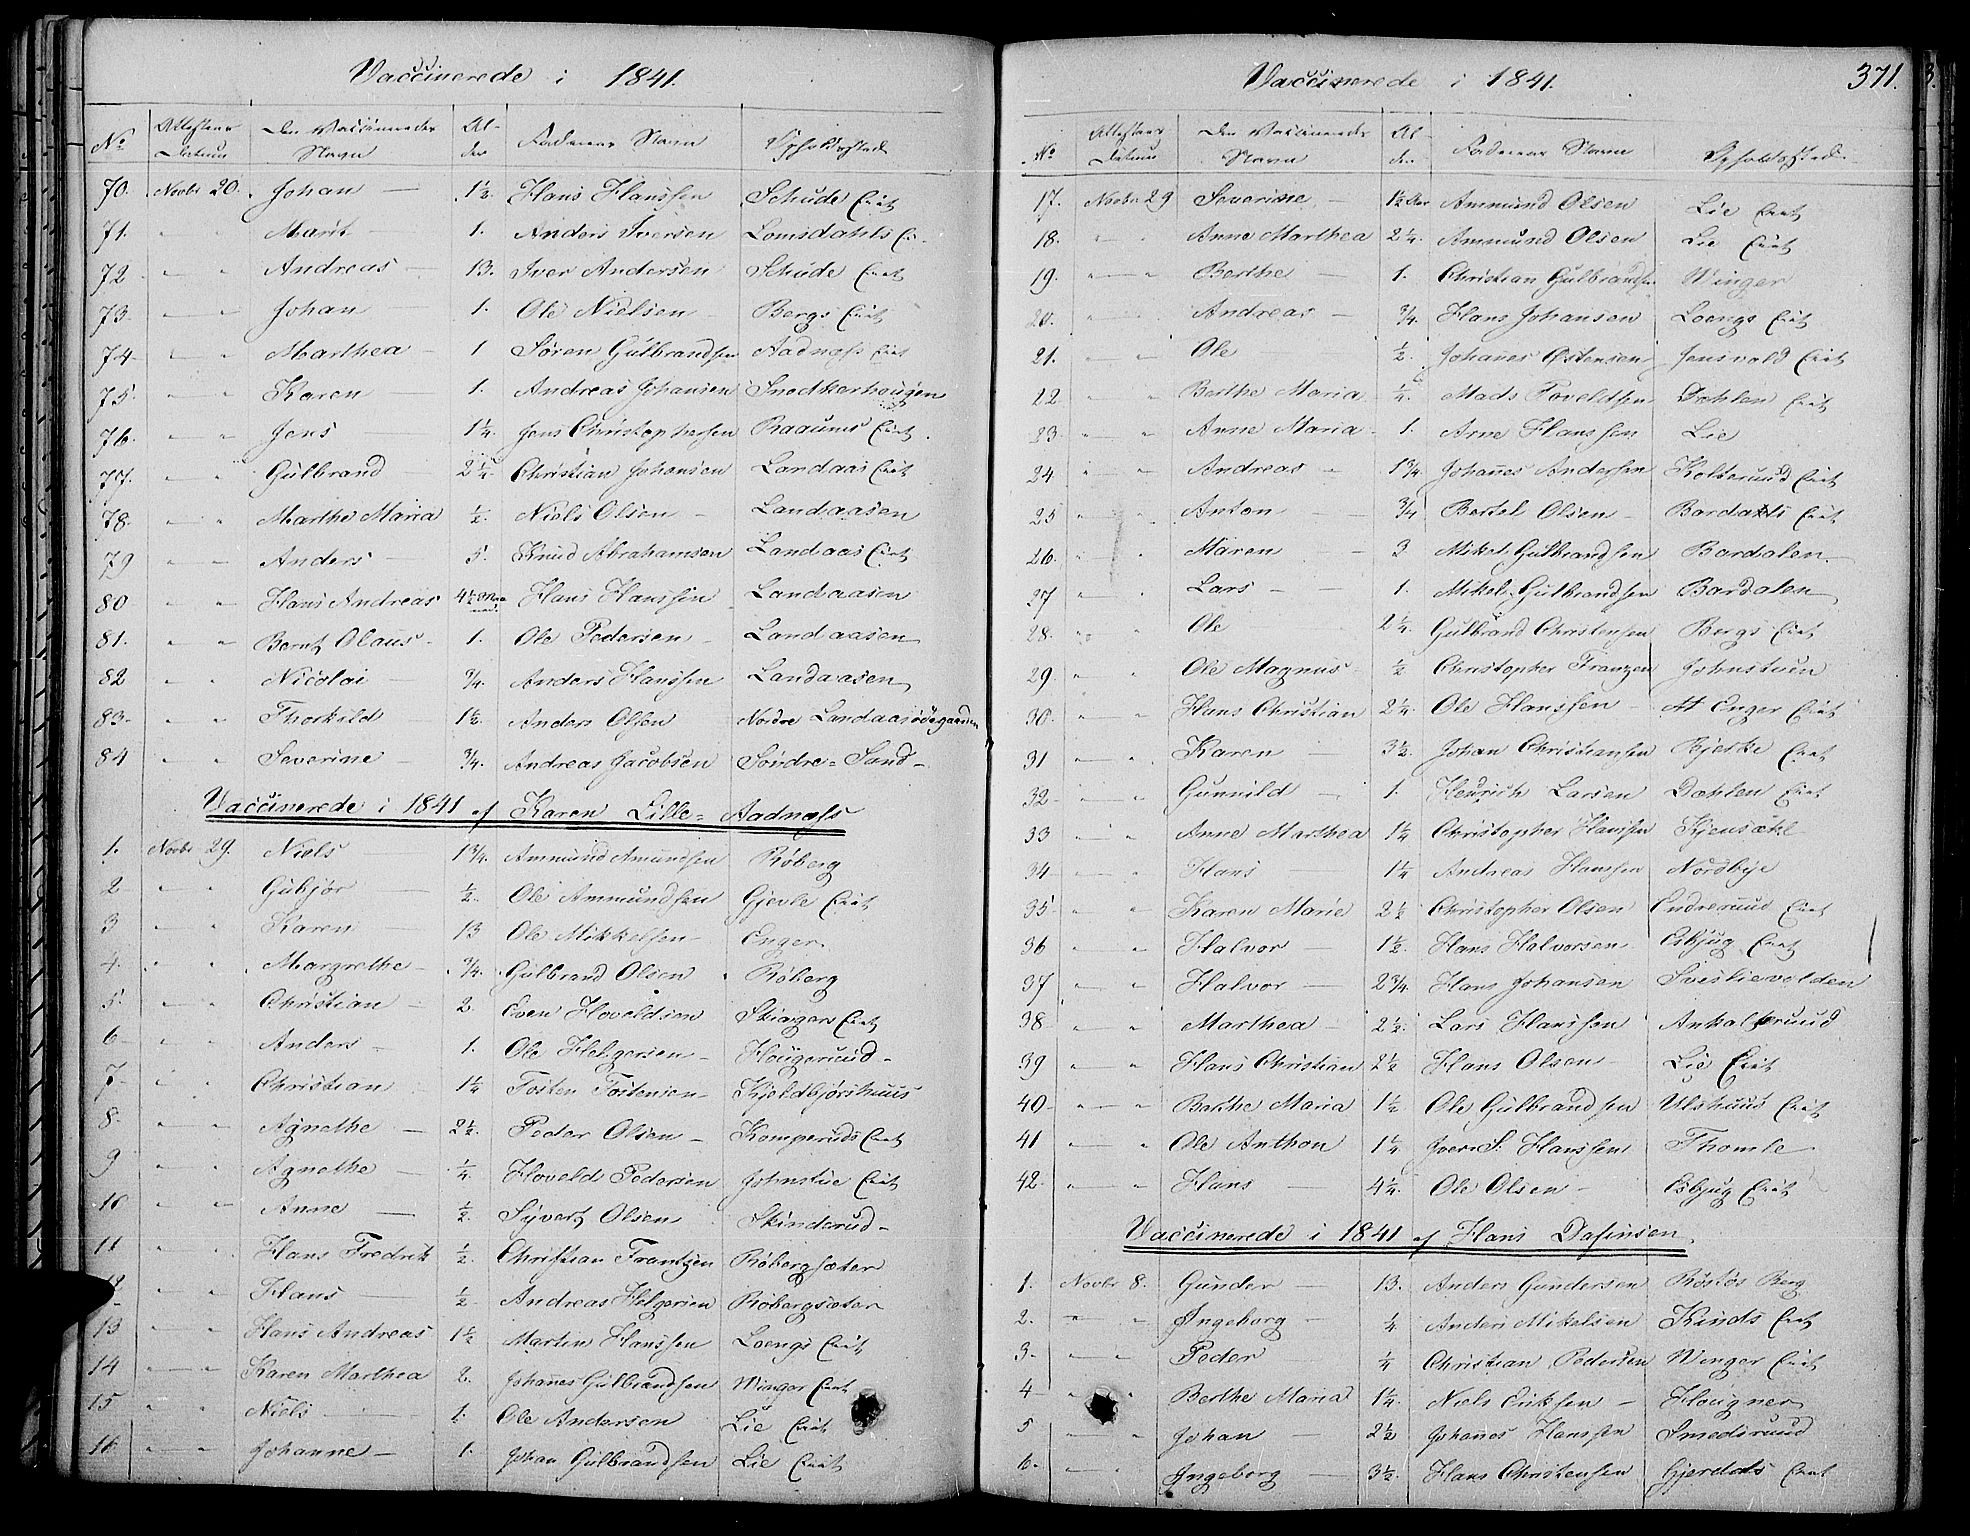 Vaccinerede i 1841.
No Attestens Datum Den Vaccineredes Navn Alder Faderens Navn Opholdssted
70. Novbr 20. Johan — 1½. Hans Hanssen Schude Eiet
71. " " Marit — 1. Anders Iversen Lomsdahls Ei.
72 " " Andreas — 13. Iver Andersen Schude Eiet
73. " " Johan — 1. Ole Nielsen Bergs Eiet
74 " " Marthea — 1 Søren Gulbrandsen Aadnæss Eiet
75 " " Karen — 1. Andreas Johansen Snedkerhougen
76. " " Jens — 1¼. Jens Christophersen Raaums Eiet.
77. " " Gulbrand 2¼. Christian Johansen Landaas Eiet
78. " " Marthe Maria ½. Niels Olsen — Landaasen
79 " " Anders — 5. Knud Abrahamsen Landaas Eiet
80 " " Hans Andreas 4½ Hans Hanssen Landaasen
81. " " Bernt Olaus — 1. Ole Pedersen — Landaasen
82 " " Nicolai — ¾. Anders Hanssen Landaasen
83. " " Thorkild — 1½. Anders Olsen Nordre Landaasødegaarden
84 " " Severine — ¾. Andreas Jacobsen Søndre = Sand —
Vaccinerede i 1841 af Karen Lille = Aadnæss
1. Novbr 29. Niels 1¾. Ammund Amundsen Røberg
2 " " Gubjør — ½. Ole Ammundsen Gjevle Eiet
3 " " Karen — 13 Ole Mikkelsen — Enger
4. " " Margrethe — ¾. Gulbrand Olsen Røberg
5. " " Christian — 2. Even Hoveldsen Skiagers Eiet
6 " " Anders — 1. Ole Helgersen — Hougerud —
7 " " Christian 1¼ Tosten Tostensen — Kjeldbjørshuus
8. " " Agnethe — 2½. Peder Olsen — Komperuds Eiet
9 " " Agnethe — ¼. Hoveld Pedersen Johnstue Eiet
10 " " Anne — ½. Syvert Olsen Skinderud —
11 " " Hans Fredrik ½. Christian Frantzen Røbergsæter
12 " " Hans — ½. Andreas Helgersen Røbergsæter
13 " " Hans Andreas 1½ Martin Hanssen Loengs Eiet
14 " " Karen Marthea 2. Johannes Gulbrandsen Winger Eiet
15 " " Niels — 1. Ole Andersen Lie Eiet
16 " " Johanne — 1. Johan Gulbrandsen Lie Eiet
Vaccinerede i 1841. 371.
No Attestens Datum Den Vaccineredes Navn Alder Faderens Navn Opholdssted
17. Novbr 29 Severine — 1½ Aar Ammund Olsen Lie Eiet
18. " " Anne Marthea 2¼. Ammund Olsen Lie Eiet
19. " " Berthe — 1. Christian Gulbrandsen Winger
20. " " Andreas — ¾. Hans Johansen Loengs Eiet
21. " " Ole ½. Johanes Østensen Jensvold Eiet
22 " " Berthe Maria ¼. Mads Poveldsen Dæhlen Eiet
23 " " Anne Maria — 1. Arne Hanssen Lie
24 " " Andreas — 1¾. Johannes Andersen Kolterud Eiet
25 " " Anton — ¾ Bertel Olsen — Bardals Eiet
26. " " Maren — 3 Mikel Gulbrandsen Bardalen
27 " " Lars — 1. Mikel Gulbrandsen Bardalen
28. " " Ole — 2¼. Gulbrand Christensen Bergs Eiet
29. " " Ole Magnus — ½ Christopher Frantzen Johnstuen
30. " " Hans Christian 2¼. Ole Hanssen — St Enger Eiet
31 " " Karen — 3½. Johan Christiansen Bjerke Eiet
32 " " Gunnild — 1. Hendrich Larsen Dæhlen Eiet
33 " " Anne Marthea 1¼ Christopher Hanssen Kjensæhl
34 " " Hans — 1¼ Andreas Hanssen Nordbye
35 " " Karen Marie 2½ Christopher Olsen Endrerud Eiet
36 " " Halvor — 1½. Hans Halvorsen Esbjug Eiet
37 " " Halvor — 2¾. Hans Johansen Svelievolden
38. " " Marthea — 2½. Lars Hanssen Ankalsruud
39 " " Hans Christian 2½ Hans Olsen — Lie Eiet
40 " " Berthe Maria 1½. Ole Gulbrandsen Ulshuus Eiet
41 " " Ole Anthon 1¼. Iver S. Hanssen Thomle
42. " " Hans — 4¼. Ole Olsen — Esbjug Eiet
Vaccinerede i 1841 af Hans Dafinsen
1. Novbr 8. Gunder — 13. Anders Gundersen Røstøs Berg
2. " " Ingeborg — ¼ Anders Mikelsen Kinds Eiet
3. " " Peder — ¼ Christian Pedersen Winger Eiet
4 " " Berthe Maria 1¼ Niels Eriksen — Hougner
5 " " Johan — 2½ Johannes Hanssen Smedsruud
6. " " Ingeborg — 3½. Hans Christensen Gjerdals Eiet